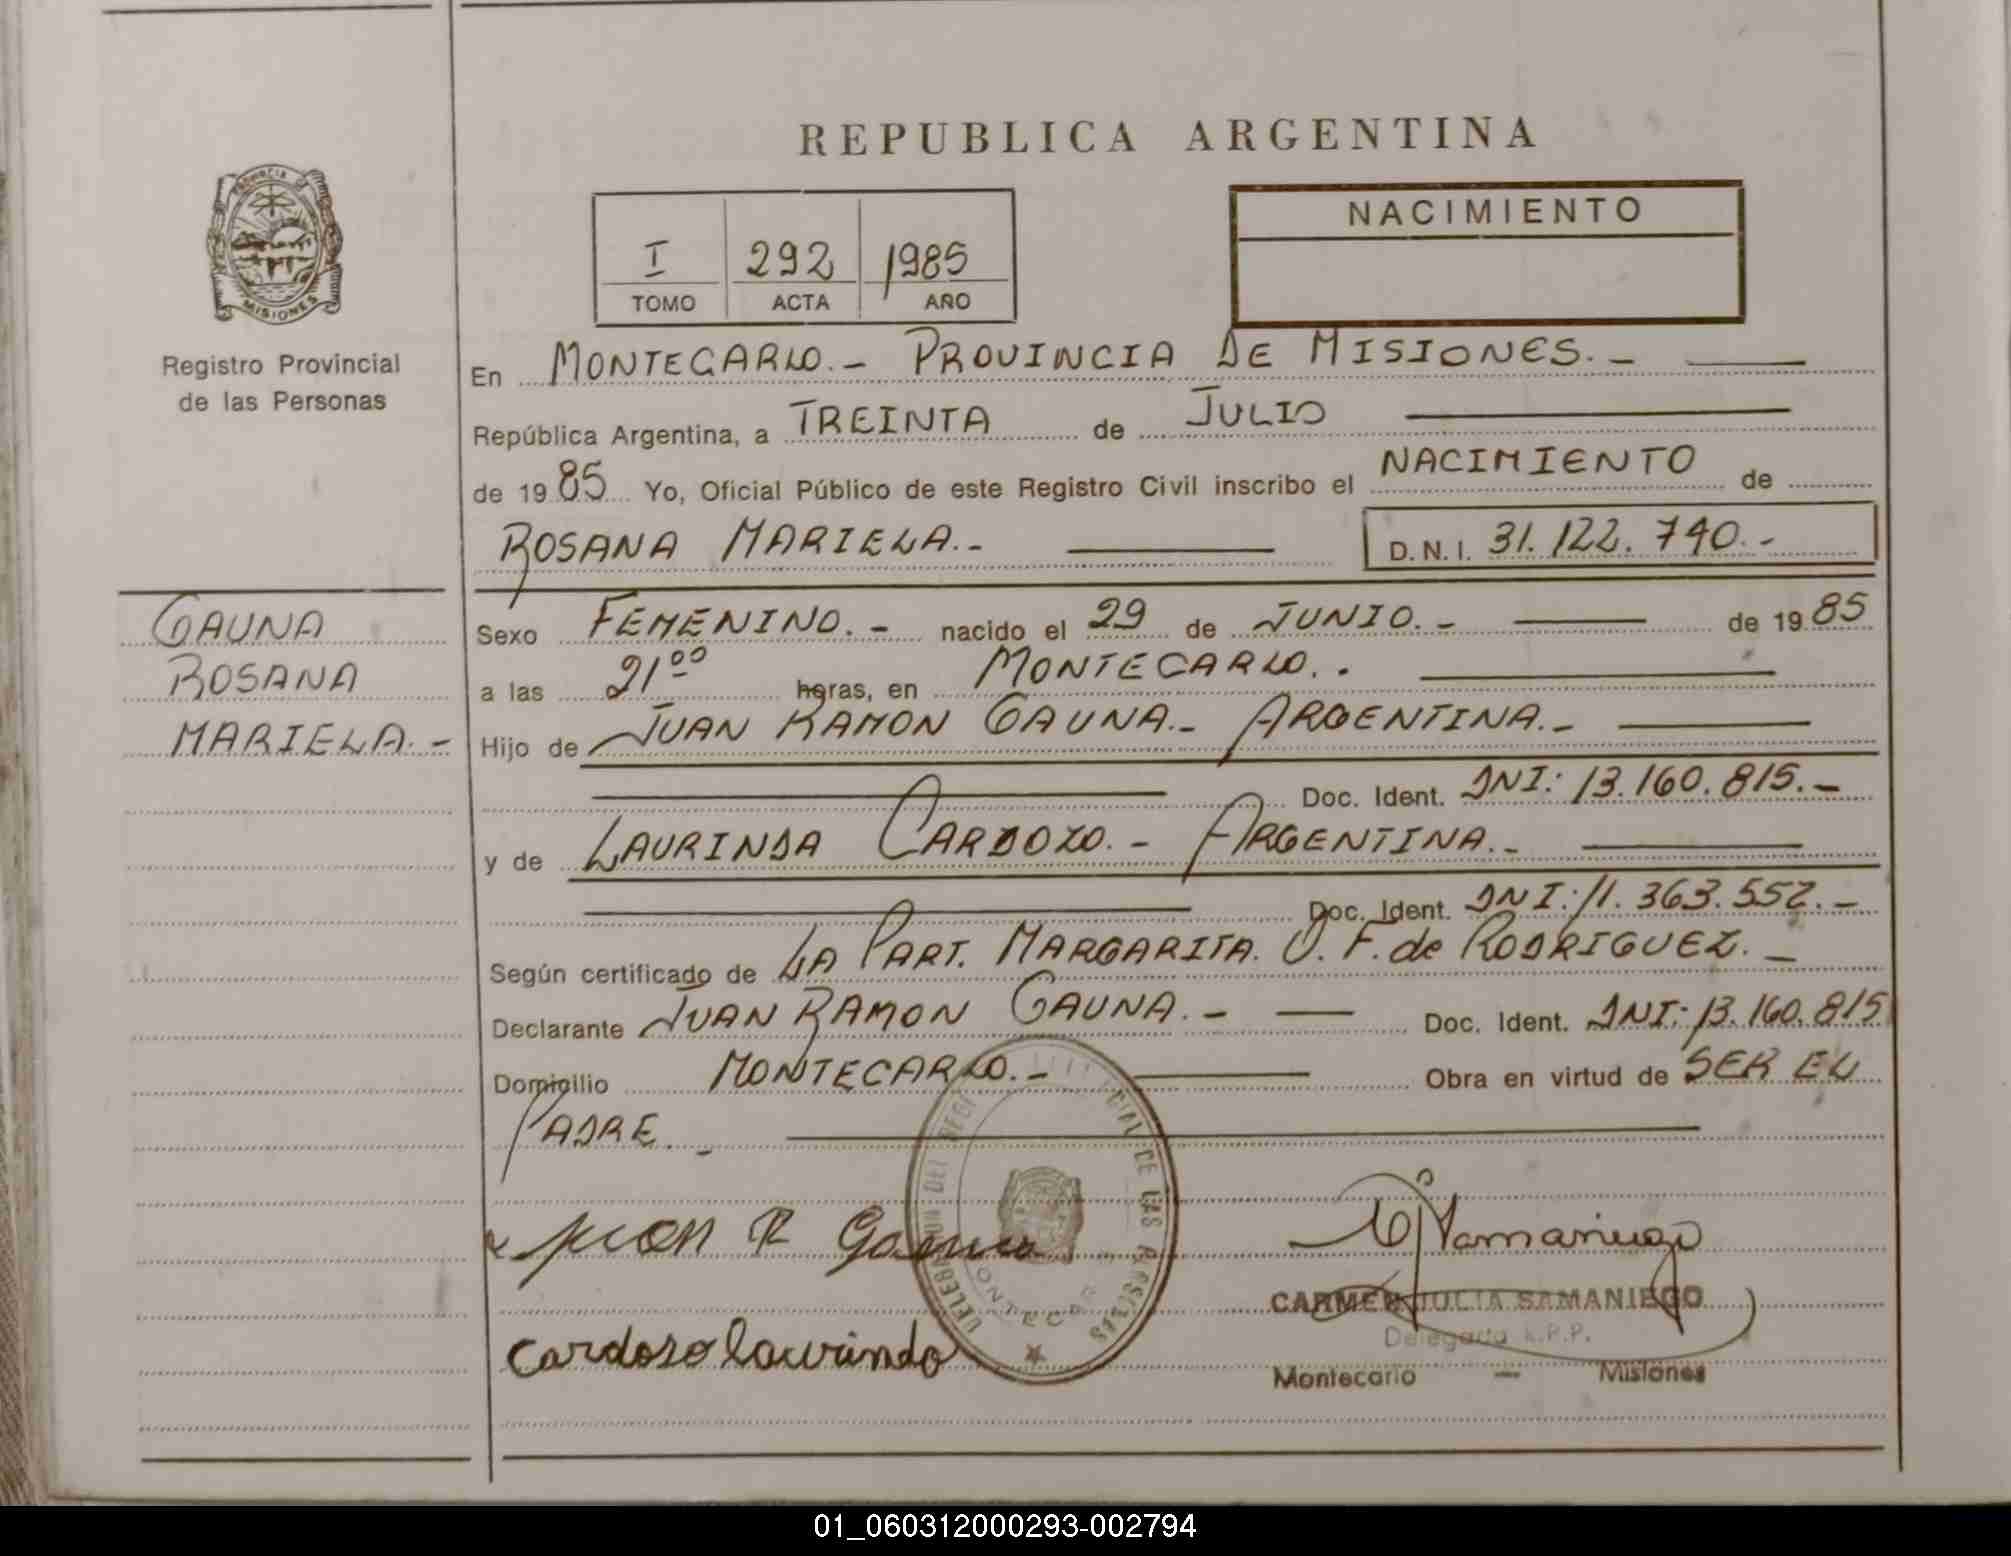 REPUBLICA ARGENTINA
PROVINCIA DE
MISIONES
Registro Provincial
de las Personas
I 292 1985
TOMO ACTA AÑO
NACIMIENTO
En MONTECARLO.- PROVINCIA DE MISIONES.-
República Argentina, a TREINTA de JULIO
de 1985 Yo, Oficial Público de este Registro Civil inscribo el NACIMIENTO de
ROSANA MARIELA.- D.N.I. 31.122.740.-
GAUNA
ROSANA
MARIELA.-
Sexo FEMENINO.- nacido el 29 de JUNIO.- de 1985
a las 21⁰⁰ horas, en MONTECARLO..
Hijo de JUAN RAMON GAUNA.- ARGENTINA.-
Doc. Ident. DNI: 13.160.815.-
y de LAURINDA CARDOZO.- ARGENTINA.-
Doc. Ident. DNI: 11.363.552.-
Según certificado de LA PART. MARGARITA. O. F. de RODRIGUEZ.-
Declarante JUAN RAMON GAUNA.- Doc. Ident. DNI: 13.160.815
Domicilio MONTECARLO.- Obra en virtud de SER EL
PADRE.-
Juan R Gauna
Cardozo laurinda
DE LAS
MONTECARLO
CARMEN JULIA SAMANIEGO
Delegada R.P.P.
Montecarlo - Misiones
01_060312000293-002794